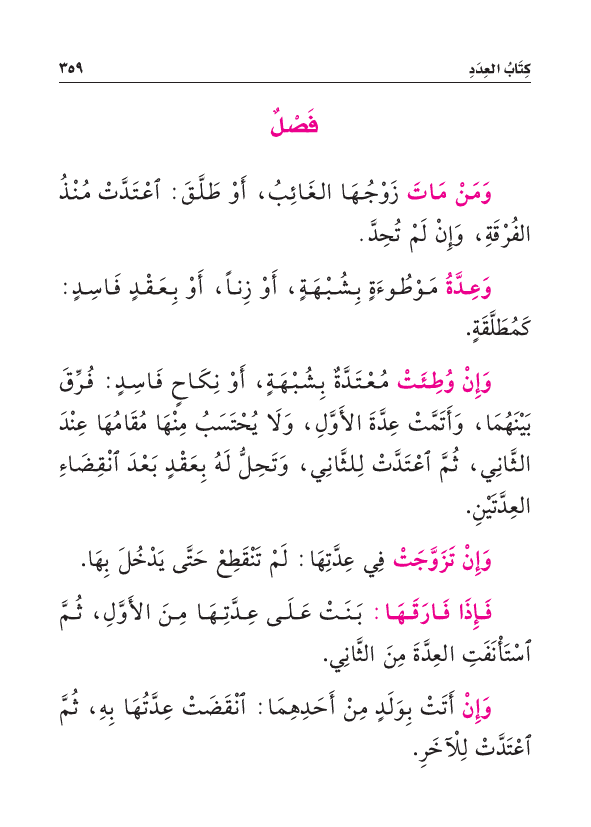 كِتَابُ العِدَدِ ٣٥٩
فَصْلٌ
وَمَنْ مَاتَ زَوْجُهَا الغَائِبُ، أَوْ طَلَّقَ: ٱعْتَدَّتْ مُنْذُ
الفُرْقَةِ، وَإِنْ لَمْ تُحِدَّ.
وَعِدَّةُ مَوْطُوءَةٍ بِشُبْهَةٍ، أَوْ زِناً، أَوْ بِعَقْدٍ فَاسِدٍ:
كَمُطَلَّقَةٍ.
وَإِنْ وُطِئَتْ مُعْتَدَّةٌ بِشُبْهَةٍ، أَوْ نِكَاحٍ فَاسِدٍ: فُرِّقَ
بَيْنَهُمَا، وَأَتَمَّتْ عِدَّةَ الأَوَّلِ، وَلَا يُحْتَسَبُ مِنْهَا مُقَامُهَا عِنْدَ
الثَّانِي، ثُمَّ ٱعْتَدَّتْ لِلثَّانِي، وَتَحِلُّ لَهُ بِعَقْدٍ بَعْدَ ٱنْقِضَاءِ
العِدَّتَيْنِ.
وَإِنْ تَزَوَّجَتْ فِي عِدَّتِهَا: لَمْ تَنْقَطِعْ حَتَّى يَدْخُلَ بِهَا.
فَإِذَا فَارَقَهَا: بَنَتْ عَلَى عِدَّتِهَا مِنَ الأَوَّلِ، ثُمَّ
ٱسْتَأْنَفَتِ العِدَّةَ مِنَ الثَّانِي.
وَإِنْ أَتَتْ بِوَلَدٍ مِنْ أَحَدِهِمَا: ٱنْقَضَتْ عِدَّتُهَا بِهِ، ثُمَّ
ٱعْتَدَّتْ لِلْآخَرِ.